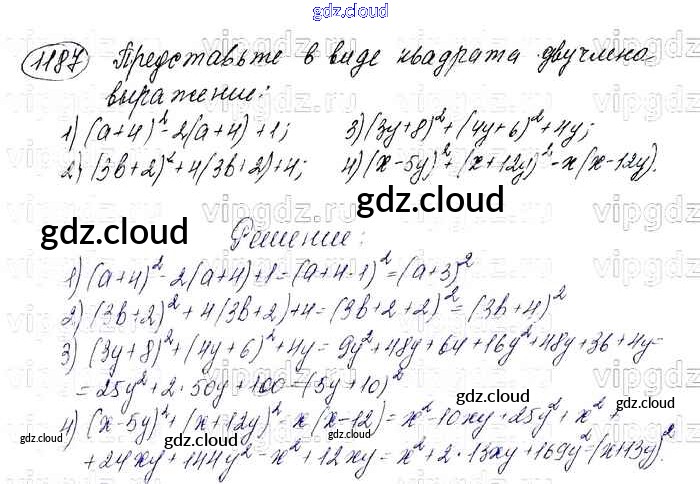 gdz.cloud
1187 Представьте в виде квадрата двучлена
выражение:
1) (a+4)²-2(a+4)+1; 3) (3y+8)²+(4y+6)²+4y;
2) (3b+2)²+4(3b+2)+4; 4) (x-5y)²+(x+12y)²-x(x-12y).
gdz.cloud gdz.cloud
Решение:
1) (a+4)²-2(a+4)+1=(a+4-1)²=(a+3)²
2) (3b+2)²+4(3b+2)+4=(3b+2+2)²=(3b+4)²
3) (3y+8)²+(4y+6)²+4y=9y²+48y+64+16y²+48y+36+4y=
=25y²+2·50y+100=(5y+10)²
gdz.cloud
4) (x-5y)²+(x+12y)²-x(x-12)=x²-10xy+25y²+x²+
gdz.cloud gdz.cloud gdz.cloud
+24xy+144y²-x²+12xy=x²+2·13xy+169y²=(x+13y)².
vipgdz.ru